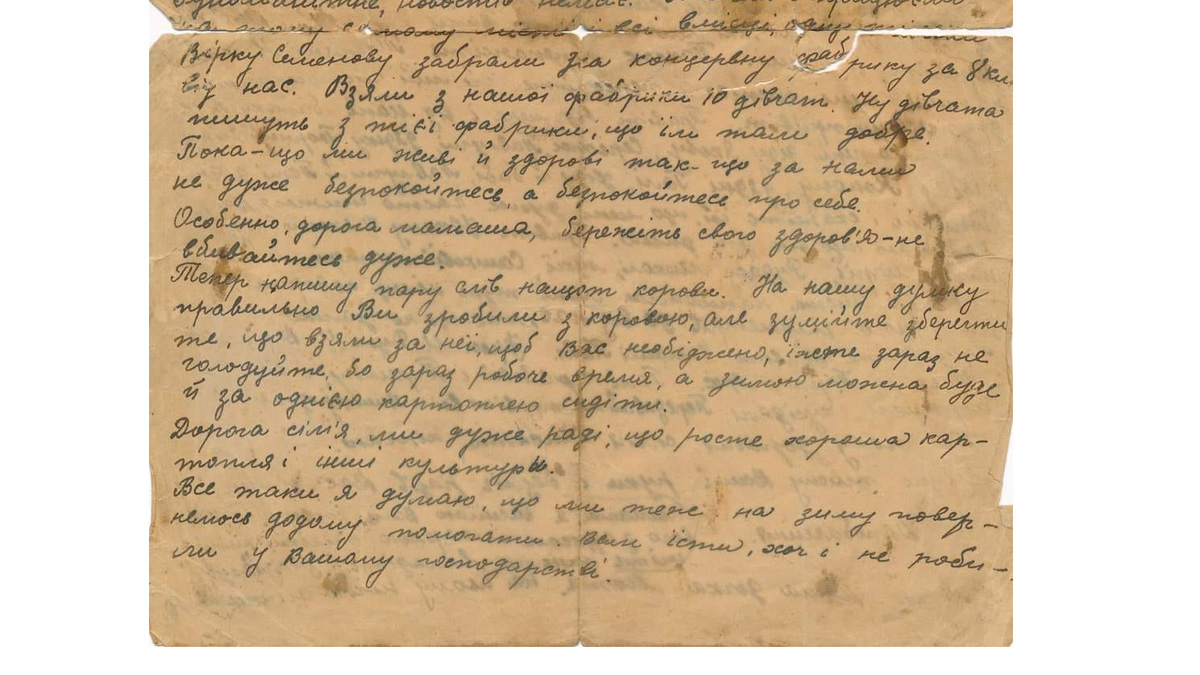 новостів немає.
всі вмісці, одну тільки
Вєрку Семенову забрали з-за концервну фабрику за 8 км.
від нас. Взяли з нашої фабрики 10 дівчат. Ну дівчата
пишуть з тієї фабрики, що їм там добре.
Пока-що ми живі й здорові так-що за нами
не дуже безпокойтесь, а безпокойтесь про себе.
Особенно, дорога мамаша, бережіть свого здоров'я-не
вбивайтесь дуже.
Тепер напишу пару слів нащот корови. На нашу думку
правильно Ви зробили з коровою, але зумійте зберегти
те, що взяли за неї, щоб Вас необіджено, їжте зараз не
голодуйте, бо зараз робоче время, а зимою можна буде
й за однією картоплею сидіти.
Дорога сім'я, ми дуже раді, що росте хороша кар-
топля і інші культуры.
Все таки я думаю, що ми теж на зиму повер-
немось додому помогати Вам їсти, хоч і не роби-
ли у Вашому господарстві.